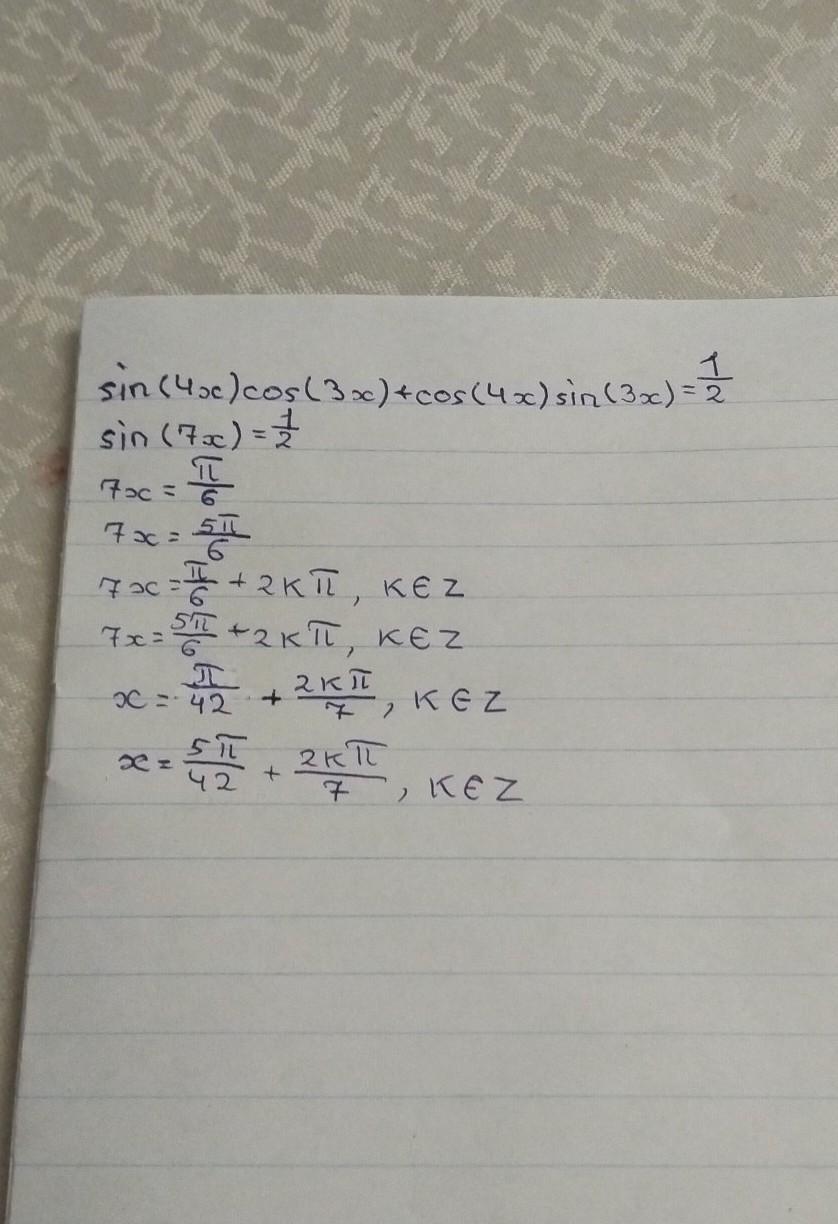 sin(4x)cos(3x)+cos(4x)sin(3x)=1/2
sin(7x)=1/2
7x=π/6
7x=5π/6
7x=π/6+2kπ, k∈Z
7x=5π/6+2kπ, k∈Z
x=π/42+2kπ/7, k∈Z
x=5π/42+2kπ/7, k∈Z